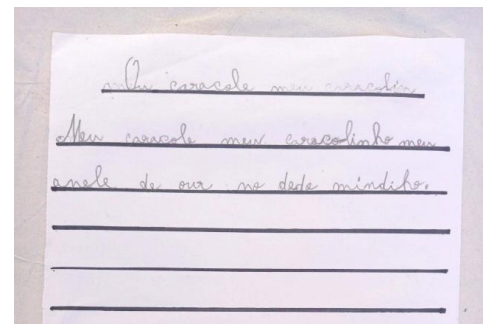 mOu caracole meu caracolin
Meu caracole meu caracolinho meu
anele de our no dede mindiho.